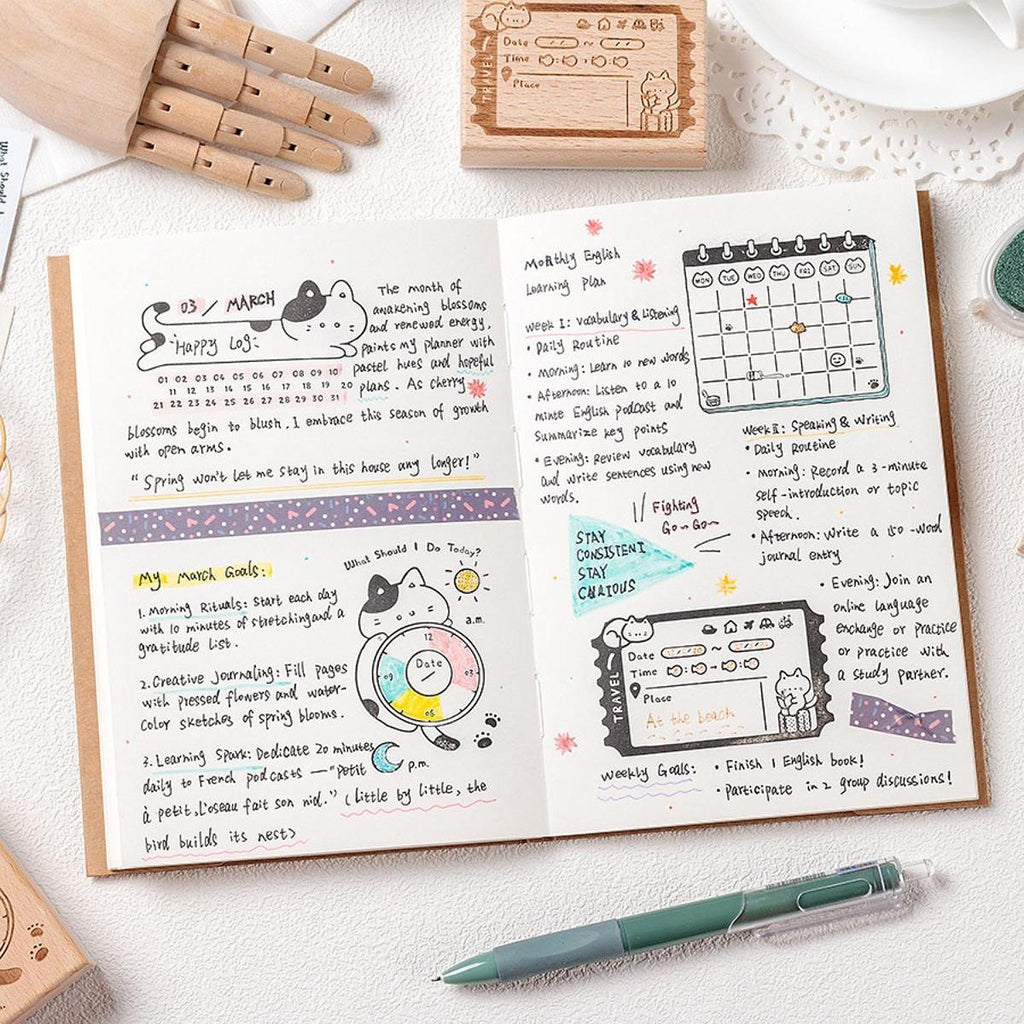 What Should I
TRAVEL
Date ~
Time
Place
03 / MARCH
Happy Log:
01 02 03 04 05 06 07 08 09 10
11 12 13 14 15 16 17 18 19 20
21 22 23 24 25 26 27 28 29 30 31
The month of
awakening blossoms
and renewed energy,
paints my planner with
pastel hues and hopeful
plans. As cherry
blossoms begin to blush, I embrace this season of growth
with open arms.
"Spring won't let me stay in this house any longer!"
My March Goals:
1. Morning Rituals: Start each day
with 10 minutes of stretching and a
gratitude list.
2. Creative Journaling: Fill pages
with pressed flowers and water-
color sketches of spring blooms.
3. Learning Spark: Dedicate 20 minutes
daily to French podcasts — "Petit
à petit, l'oseau fait son nid." (little by little, the
bird builds its nest)
What Should I Do Today?
a.m.
12
03
06
09
Date
p.m.
Monthly English
Learning Plan
Week I: Vocabulary & Listening
• Daily Routine
• Morning: Learn 10 new words
• Afternoon: Listen to a 10
minte English podcast and
Summarize key points
• Evening: Review vocabulary
and write sentences using new
words.
MON TUE WED THU FRI SAT SUN
Week II: Speaking & Writing
• Daily Routine
• Morning: Record a 3-minute
self-introduction or topic
speech.
• Afternoon: Write a 150-word
journal entry
• Evening: Join an
online language
exchange or practice
or practice with
a study partner.
Fighting
Go~Go~
STAY
CONSISTENT
STAY
CURIOUS
TRAVEL
Date ~
Time
Place
At the beach
Weekly Goals:
• Finish 1 English book!
• Participate in 2 group discussions!